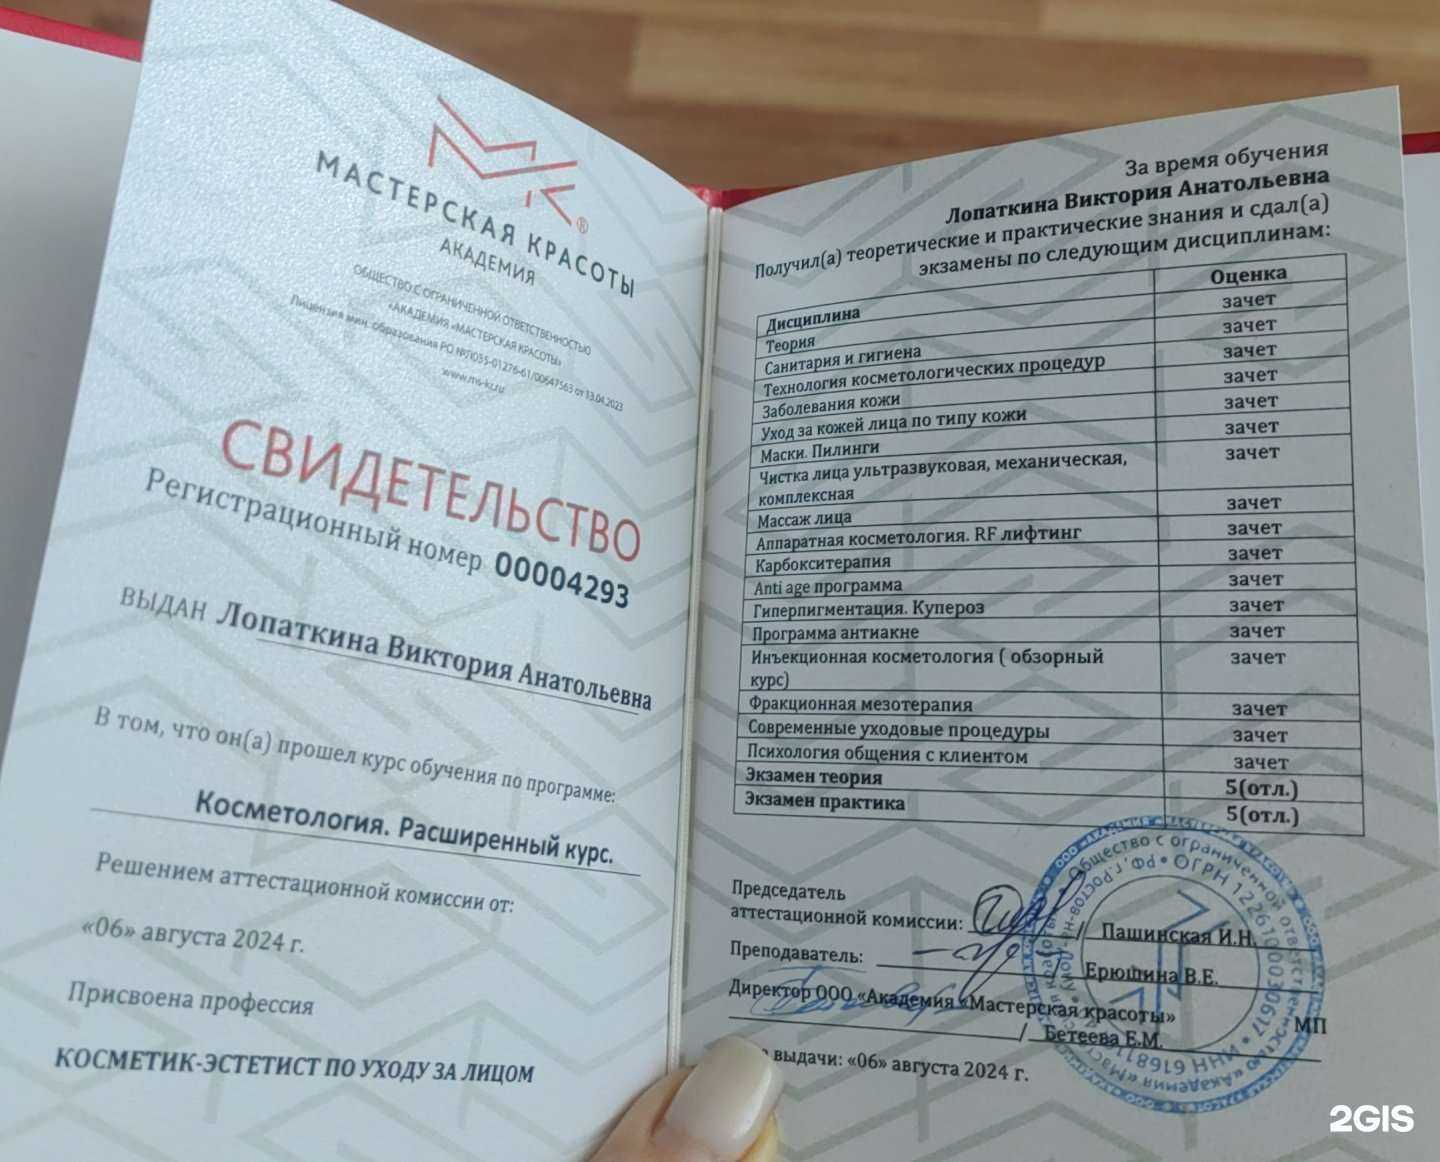 МАСТЕРСКАЯ КРАСОТЫ
®
АКАДЕМИЯ
ОБЩЕСТВО С ОГРАНИЧЕННОЙ ОТВЕТСТВЕННОСТЬЮ
«АКАДЕМИЯ «МАСТЕРСКАЯ КРАСОТЫ»
Лицензия мин. образования РО №Л035-01276-61/00647563 от 13.04.2023
www.ms-kr.ru
СВИДЕТЕЛЬСТВО
Регистрационный номер 00004293
ВЫДАН Лопаткина Виктория Анатольевна
В том, что он(а) прошел курс обучения по программе:
Косметология. Расширенный курс.
Решением аттестационной комиссии от:
«06» августа 2024 г.
Присвоена профессия
КОСМЕТИК-ЭСТЕТИСТ ПО УХОДУ ЗА ЛИЦОМ
За время обучения
Лопаткина Виктория Анатольевна
Получил(а) теоретические и практические знания и сдал(а)
экзамены по следующим дисциплинам:
Дисциплина Оценка
Теория зачет
Санитария и гигиена зачет
Технология косметологических процедур зачет
Заболевания кожи зачет
Уход за кожей лица по типу кожи зачет
Маски. Пилинги зачет
Чистка лица ультразвуковая, механическая, зачет
комплексная
Массаж лица зачет
Аппаратная косметология. RF лифтинг зачет
Карбокситерапия зачет
Anti age программа зачет
Гиперпигментация. Купероз зачет
Программа антиакне зачет
Инъекционная косметология ( обзорный зачет
курс)
Фракционная мезотерапия зачет
Современные уходовые процедуры зачет
Психология общения с клиентом зачет
Экзамен теория 5(отл.)
Экзамен практика 5(отл.)
Председатель
аттестационной комиссии: / Пашинская И.Н.
Преподаватель: / Ерюшина В.Е.
Директор ООО «Академия «Мастерская красоты»
МП
/ Бетеева Е.М.
выдачи: «06» августа 2024 г.
Общество с ограниченной ответственностью «Академия «Мастерская красоты»
РФ, г.Ростов-на-Дону • ОГРН 1226100030617 • ИНН
2GIS